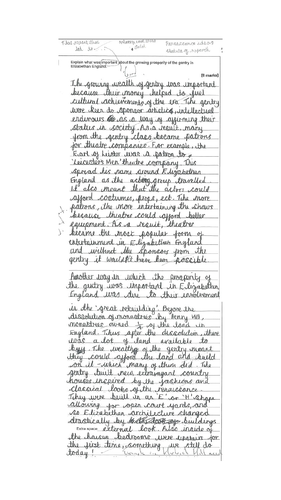 Explain what was important about the growing prosperity of the gentry in
Elizabethan England.
(8 marks)
The growing wealth of gentry was important
because their money helped to fuel
cultural achievements of the era. The gentry
were keen to sponsor artistic, intellectual
endeavours as a way of affirming their
status in society. As a result, many
from the gentry class became patrons
for theatre companies. For example, the
Earl of Leicester was a patron to
'Leicester's Men' theatre company. This
spread his name around Elizabethan
England as the acting group travelled
it also meant that the actors could
afford costumes, props, ect. The more
patrons, the more entertaining the shows
because theatre could afford better
equipment. As a result, theatre
became the most popular form of
entertainment in Elizabethan England
and without the sponsors from the
gentry it wouldn't have been possible
Another way in which the prosperity of
the gentry was important in Elizabethan
England was due to their involvement
in the 'great rebuilding'. Before the
dissolution of monasteries by Henry VIII,
monasteries owned of the land in
England. Thus after the dissolution, there
was a lot of land available to
buy. The wealth of the gentry meant
they could afford the land and build
on it - which many of them did. The
gentry built new extravagant country
houses inspired by the fashions and
classical looks of the renaissance.
They were built in an 'E' or 'H' shape
allowing for open court yards, and
so Elizabethan architecture changed
drastically by buildings
Extra space external look. Also inside of
the housing bedrooms were upstairs for
the first time, something we still do
today!